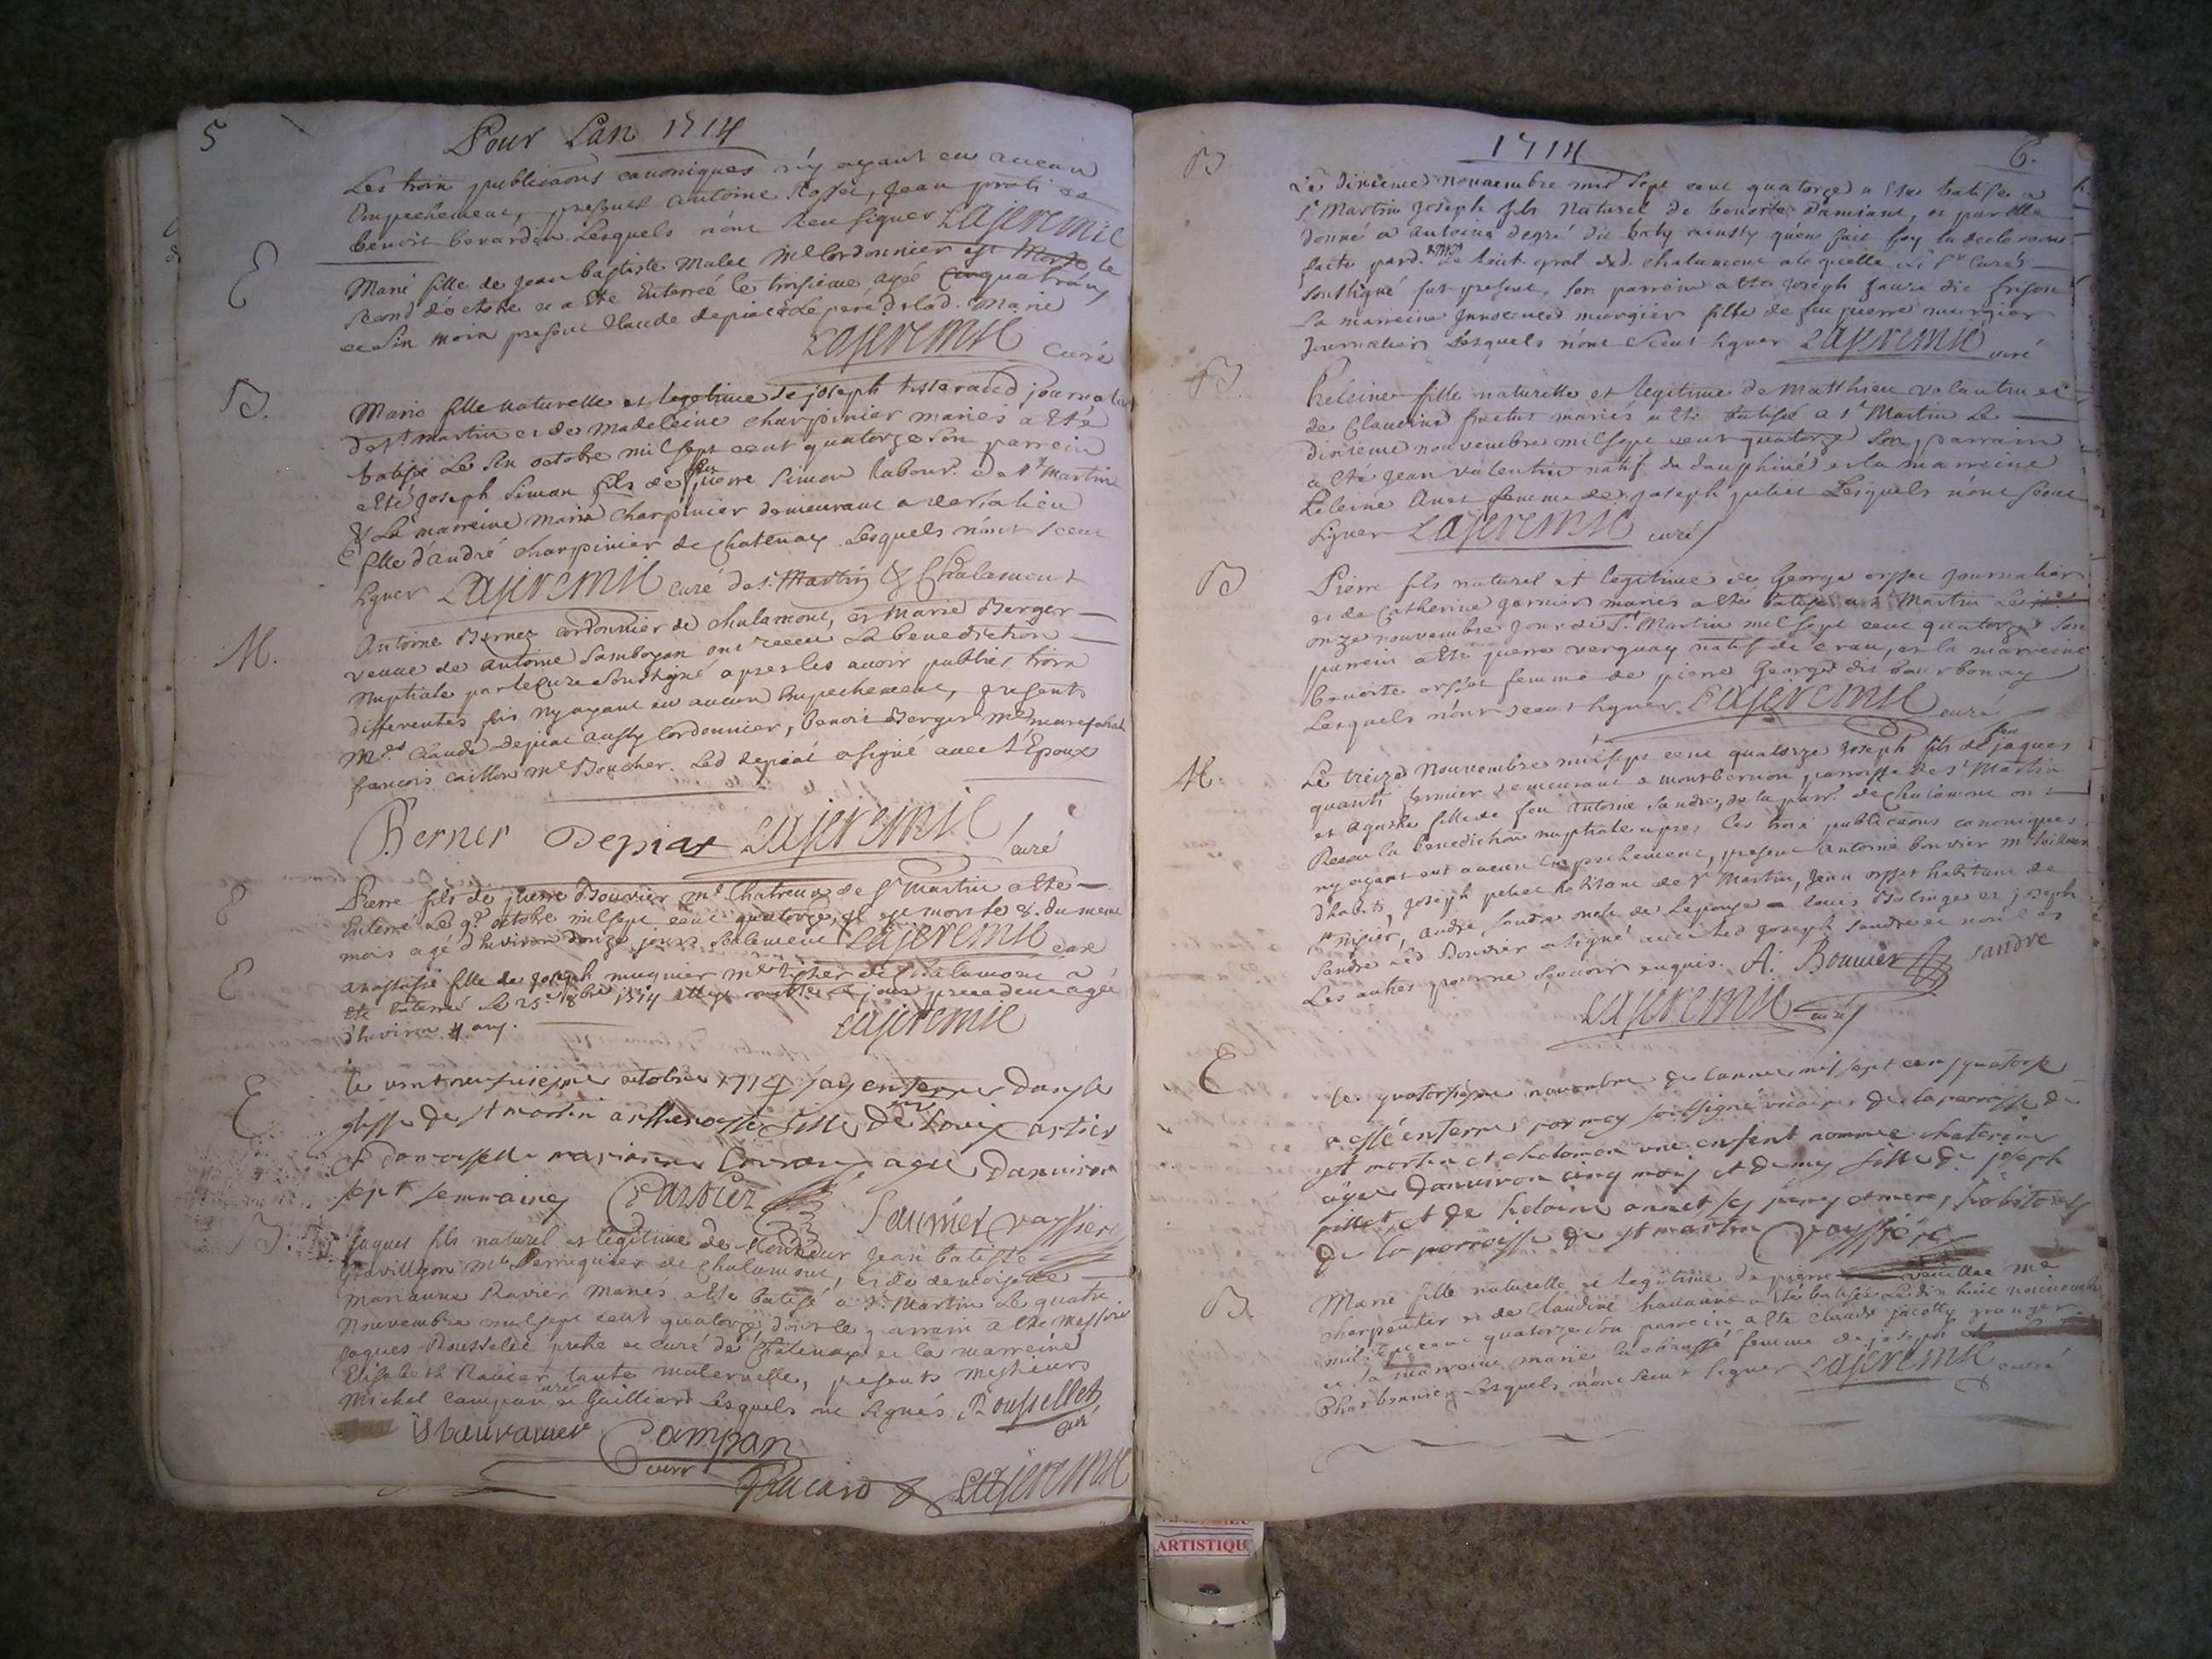 5
Pour Lan 1714
Les trois publicaons canoniques n'y ayant eu aucun
Empechement, presques antoine Rosset, Jean proti et
benoit berardin Lesquels n'ont sceu signer Lajeremie
E
Marie fille de Jean baptiste Malet Me Cordonnier est Morte le
second d'octobre et a Eté Enterreé le troisieme ageé quatre ans
et six mois present Claude depiat le pere de lad. Marie
Lajeremie curé
B.
Marie fille naturelle et legitime de joseph tisserand journalier
de st martin et de Madeleine charpinier mariés a Eté
batisé Le six octobre mil sept cent quatorze son parrein
a Eté joseph Simon fils de feu pierre Simon labour. de st martin
& La marreine Marie Charpinier demeurant a
fille d'andré charpinier de Chatenay Lesquels n'ont sceu
signer Lajeremie curé de st. Martin & Chalamont
M.
Antoine Bernez cordonnier de chalamont, et Marie Berger
veuve de antoine Samboyan ont receu La benediction
nuptiale par le Curé soussigné apres les avoir publiés trois
differentes fois n'y ayant eu aucun Empechement, presents
Mrs Claude Depiat aussy Cordonnier, benoit Berger Me marefchal
francois caillon Me Boucher. Led depiat a signé avec L'Epoux
Berner Depiat Lajeremie curé
E
Pierre fils de pierre Bouvier Md. Chatreux de st Martin a Eté
Enterré Le 9e octobre mil sept cent quatorze, il est mort le 8. du meme
mois agé d'huiron douze jours seulement Lajeremie curé
E
anastasie fille de joseph muguier Me de Chalamont a
Eté Enterré le 25e 8bre 1714 le jour precedent ageé
d'huiron 4 ans. Lajeremie
E
le vint octobre 1714 jay enterre dans le
glisse de st martin fille de Louis artier
et damoiselle agee danuiron
sept semmaines Cartier Saunier vayssiere
B.
Jaques fils naturel et legitime de Monsieur Jean batiste
Gravillyon Me Perruquier de Chalamont, et de demoiselle
Marianne Ravier Mariés a Eté batisé a St. Martin Le quatre
Nouvembre mil sept cent quatorze, dont le parrain a Eté Messire
Jaques Rousselet pretre et curé de Chatenay et la marreine
Elisabeth Ravier tante maternelle, presents messieurs
Michel Campan curé et Gailliard Lesquels ont signés Rousselet curé
Campan curé
Lajeremie
1714
6.
B
Le dixieme nouvembre mil sept cent quatorze a Eté batisé a
St Martin joseph fils Naturel de benoite Damiant, et par Elle
donné a antoine degré dit baty ainsty qu'en fait foy la declaraon
faite pard. le lieut. gnal de d. chalamont a la quelle Le Sr Curé
soussigné fut present, son parrein a Eté joseph faure dit frison
La marreine Innocence murgier fille de feu pierre murgier
Journalier Lesquels n'ont Sceut signer Lajeremie curé
B.
heleine fille naturelle et legitime de Matthieu valantin et
de Claudine fractat mariés a Eté batisé a St Martin Le
dixieme nouvembre mil sept cent quatorze son parrain
a Eté Jean valentin natif du dauphiné et la marreine
heleine Anet femme de joseph pillet Lesquels n'ont sceut
signer Lajeremie curé
B
Pierre fils naturel et legitime de George orsset Journalier
et de Catherine garnier mariés a Eté batisé a St Martin Le
onze nouvembre jour de St Martin mil sept cent quatorze son
parrein a Eté pierre verguay natif de cran, et la marreine
benoite orsset femme de pierre George dit bourbonay
Lesquels n'ont sceut signer Lajeremie curé
M.
Le treize Nouvembre mil sept cent quatorze joseph fils de feu jaques
quanti fermier demeurant a montbernon parroisse de St Martin
et agathe fille de feu antoine Sandre, de la parr. de Chalamont ont
Receu la benediction nuptiale apres les trois publicaons canoniques
n'y ayant eut aucun Empechement, present antoine bouvier Me tailleur
d'habits, joseph pelet habitant de St Martin, Jean orsset habitant de
St nizier, andre Sandre oncle de L'epouse, Louis Bolinge et joseph
Sandre Led Bouvier a signé avec Led joseph Sandre et non les
Les autres pour ne sçavoir enquis. A. Bouvier Sandre
Lajeremie curé
E
le quatorsieme novembre de lannee mil sept cens quatorse
a esté enterre par moy soubsigné vicaire de la parroisse de
st martin et chalamon une enfent nommee chaterine
agee danuiron cinq mois et demy fille de joseph
pillet et de helaine annet ses pere et mere, habitants
de la parroisse de st martin Vayssiere
B.
Marie fille naturelle et legitime de pierre Me
charpentier et de Claudine havanne a Eté batisée Le dix huit nouvembre
mil sept cent quatorze son parrein a Eté claude jacotty granger
et sa marreine marie la chaussé femme de joseph
Charbonnier Lesquels n'ont Sceut signer Lajeremie curé
ARTISTIQU